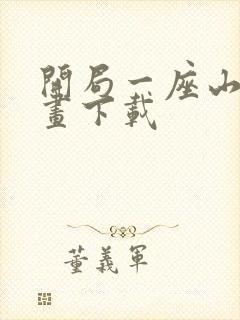 開局一座山
畫下載
董義軍